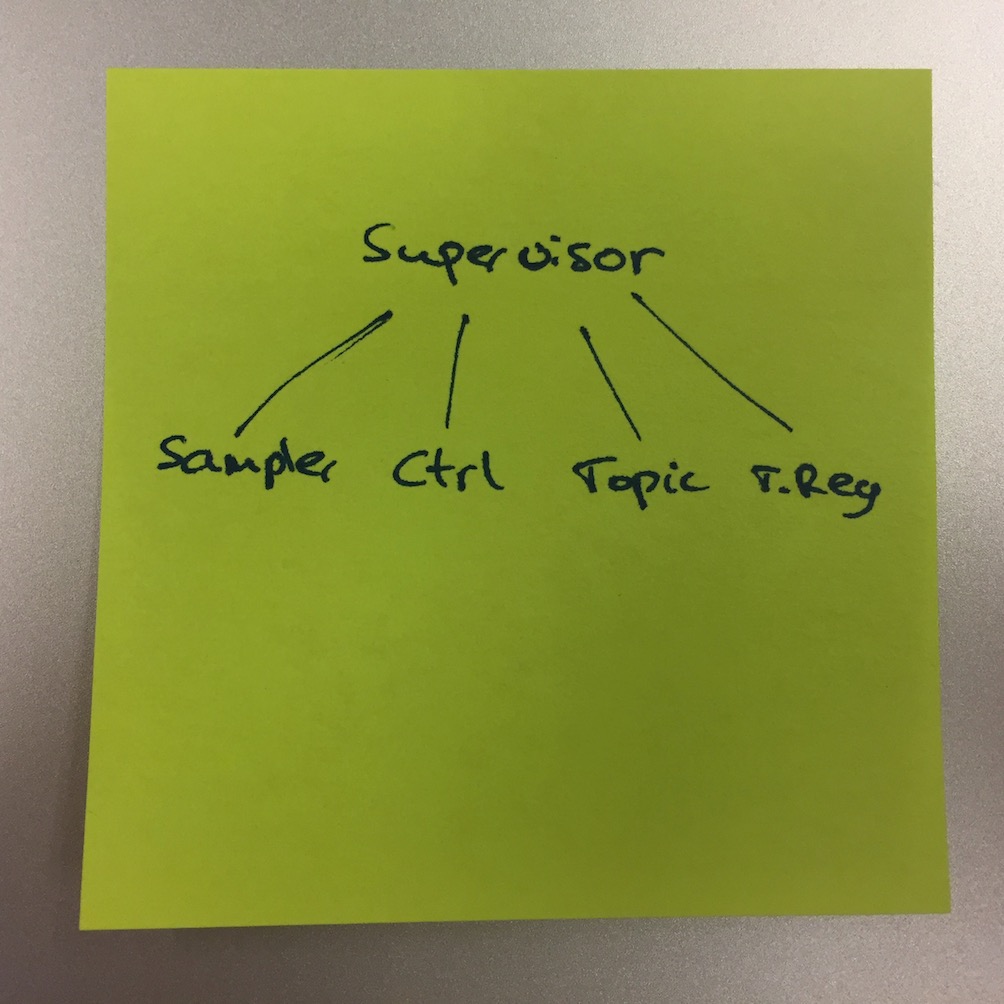 Supervisor
Sampler Ctrl Topic T.Reg